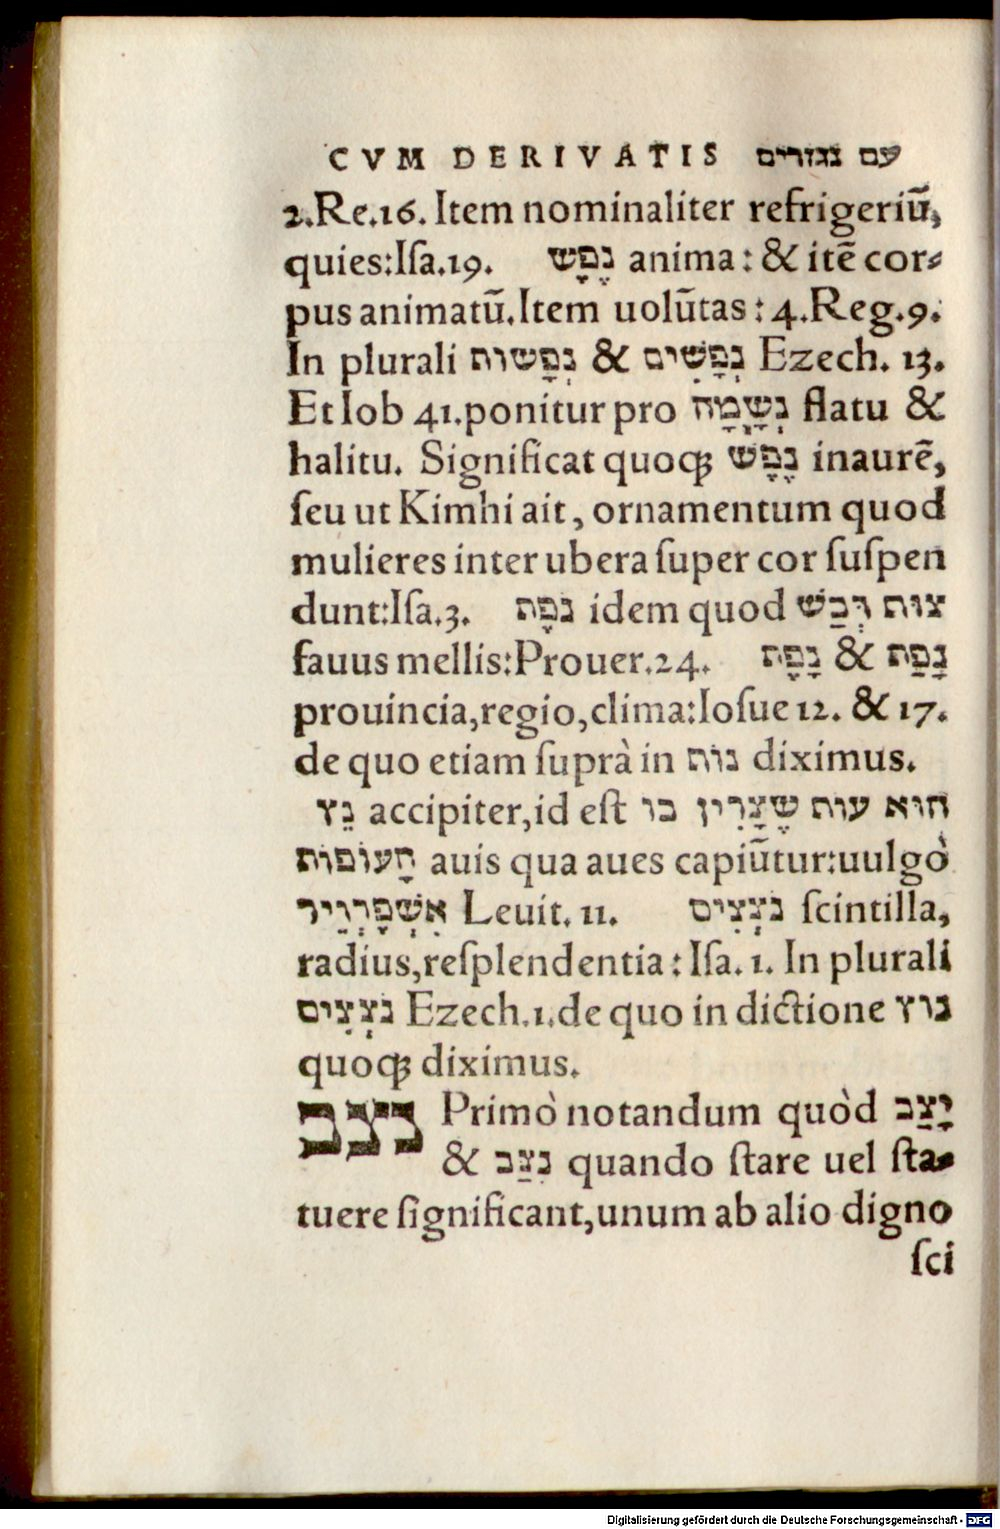 CVM DERIVATIS עם נגזרים
2.Re.16. Item nominaliter refrigeriū,
quies:Iſa.19. נֶפֶשׁ anima: & itē cor⸗
pus animatū.Item uolūtas: 4.Reg.9.
In plurali נְפָשׁות & נְפָשִׁים Ezech. 13.
Et Iob 41.ponitur pro נְשָׁמָה flatu &
halitu. Significat quoqꝫ נֶפֶשׁ inaurē,
ſeu ut Kimhi ait, ornamentum quod
mulieres inter ubera ſuper cor ſuſpen
dunt:Iſa.3. נֹפֶת idem quod צוּת דְּבַשׁ
fauus mellis:Prouer.24. נָפֶת & נָפַת
prouincia,regio,clima:Ioſue 12. & 17.
de quo etiam ſuprà in נוֹת diximus.
נֵץ accipiter,id eſt הוּא עות שֶׁצָּדִין בו
הָעוֹפוֹת auis qua aues capiūtur:uulgò
אִשְׁפָּרְוַיר Leuit. 11. נֹצְצִים ſcintilla,
radius,reſplendentia: Iſa. 1. In plurali
נֹצְצִים Ezech.1.de quo in dictione נוץ
quoqꝫ diximus.
נצב Primò notandum quòd יָצַב
& נִצַב quando ſtare uel ſta⸗
tuere ſignificant,unum ab alio digno
ſci
Digitalisierung gefördert durch die Deutsche Forschungsgemeinschaft - DFG